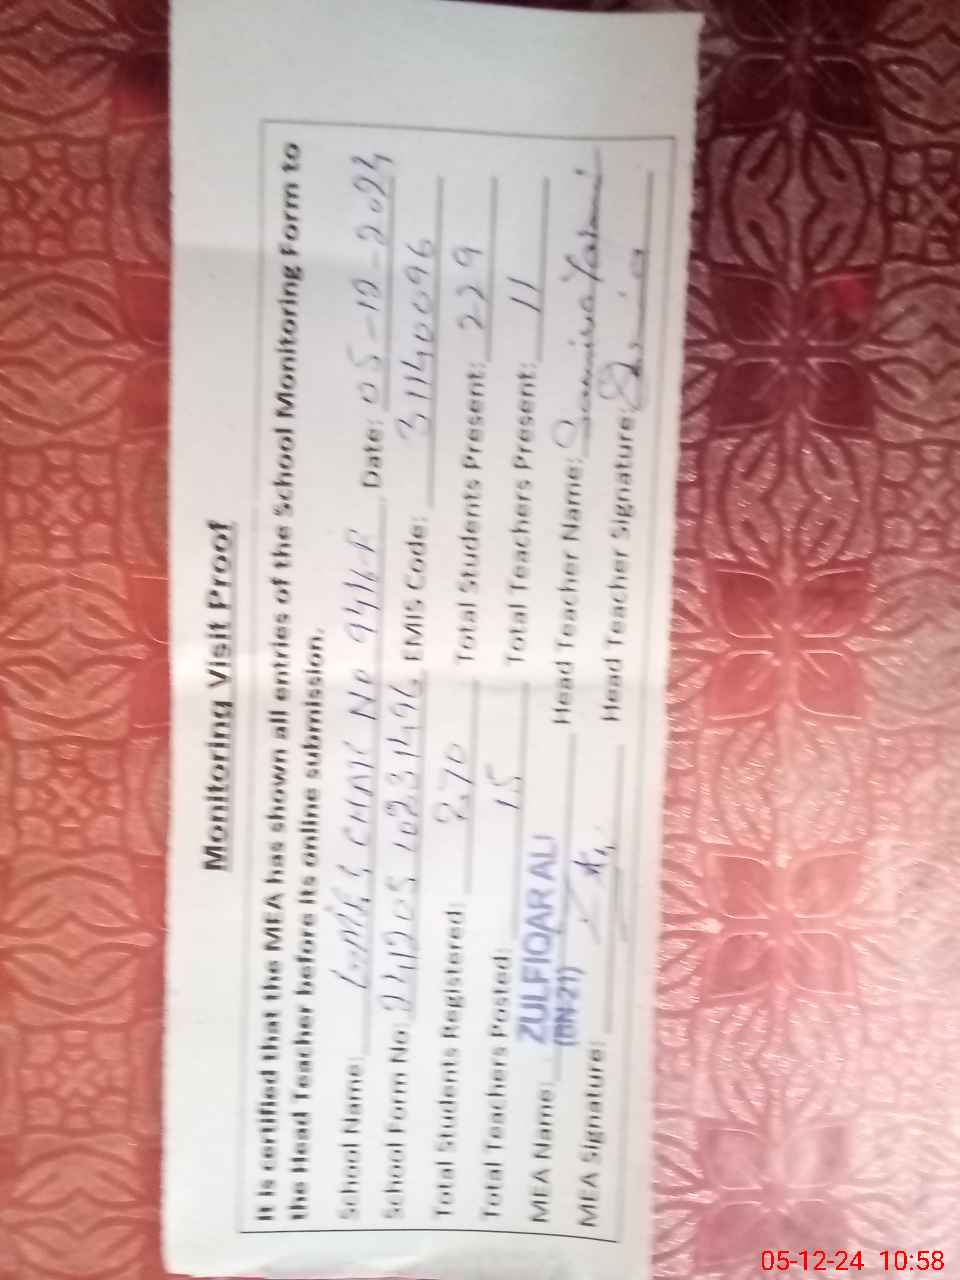 Monitoring Visit Proof
It is certified that the MEA has shown all entries of the School Monitoring Form to
the Head Teacher before its online submission.
School Name: CHAK No Date: 05-12-2024
School Form No: EMIS Code: 31140096
Total Students Registered: 270 Total Students Present: 229
Total Teachers Posted: 15 Total Teachers Present: 11
MEA Name: ZULFIQAR ALI Head Teacher Name:
(BN-21)
MEA Signature: Head Teacher Signature:
05-12-24 10:58